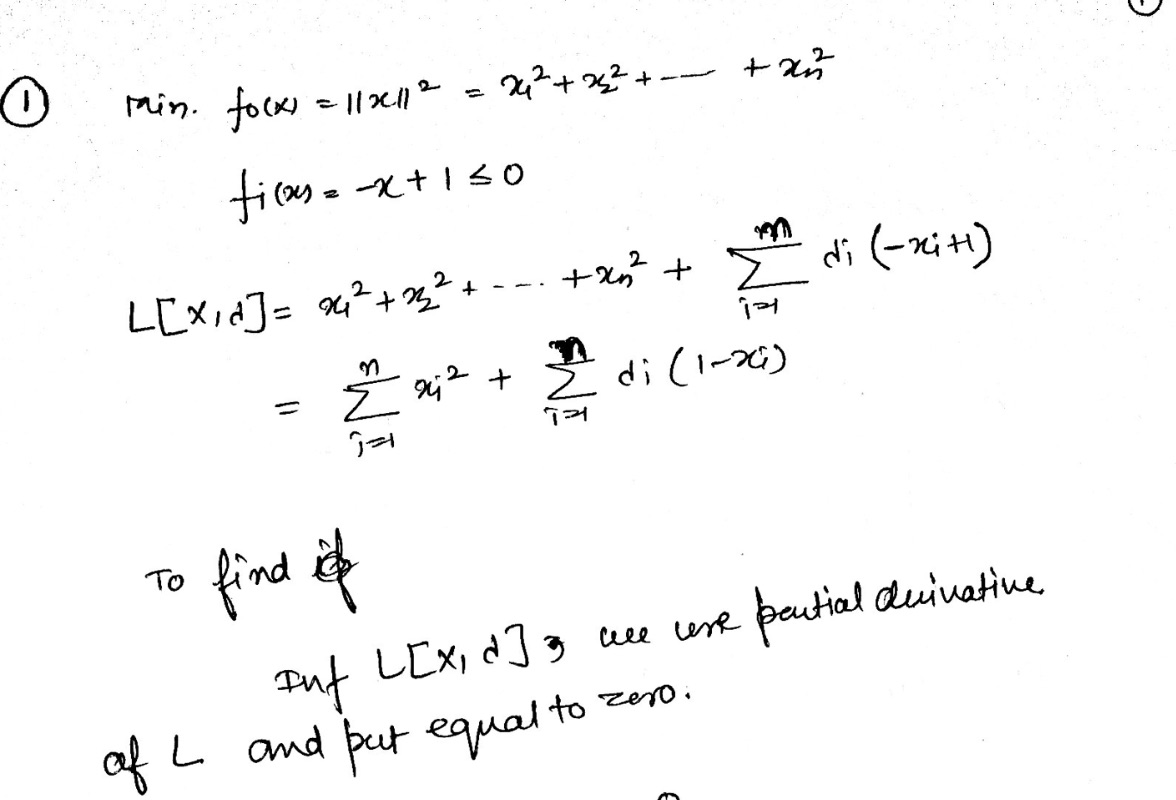 ① min. fo(x) = ||x||² = x₁² + x₂² + --- + xₙ²
fi(x) = -x + 1 ≤ 0
L[x,d] = x₁² + x₂² + - - - . + xₙ² + ∑ᵢ₌₁ᵐ di (-xi+1)
= ∑ᵢ₌₁ⁿ xi² + ∑ᵢ₌₁ⁿ di (1-xi)
To find
Inf L[x, d], we use partial derivative
of L and put equal to zero.